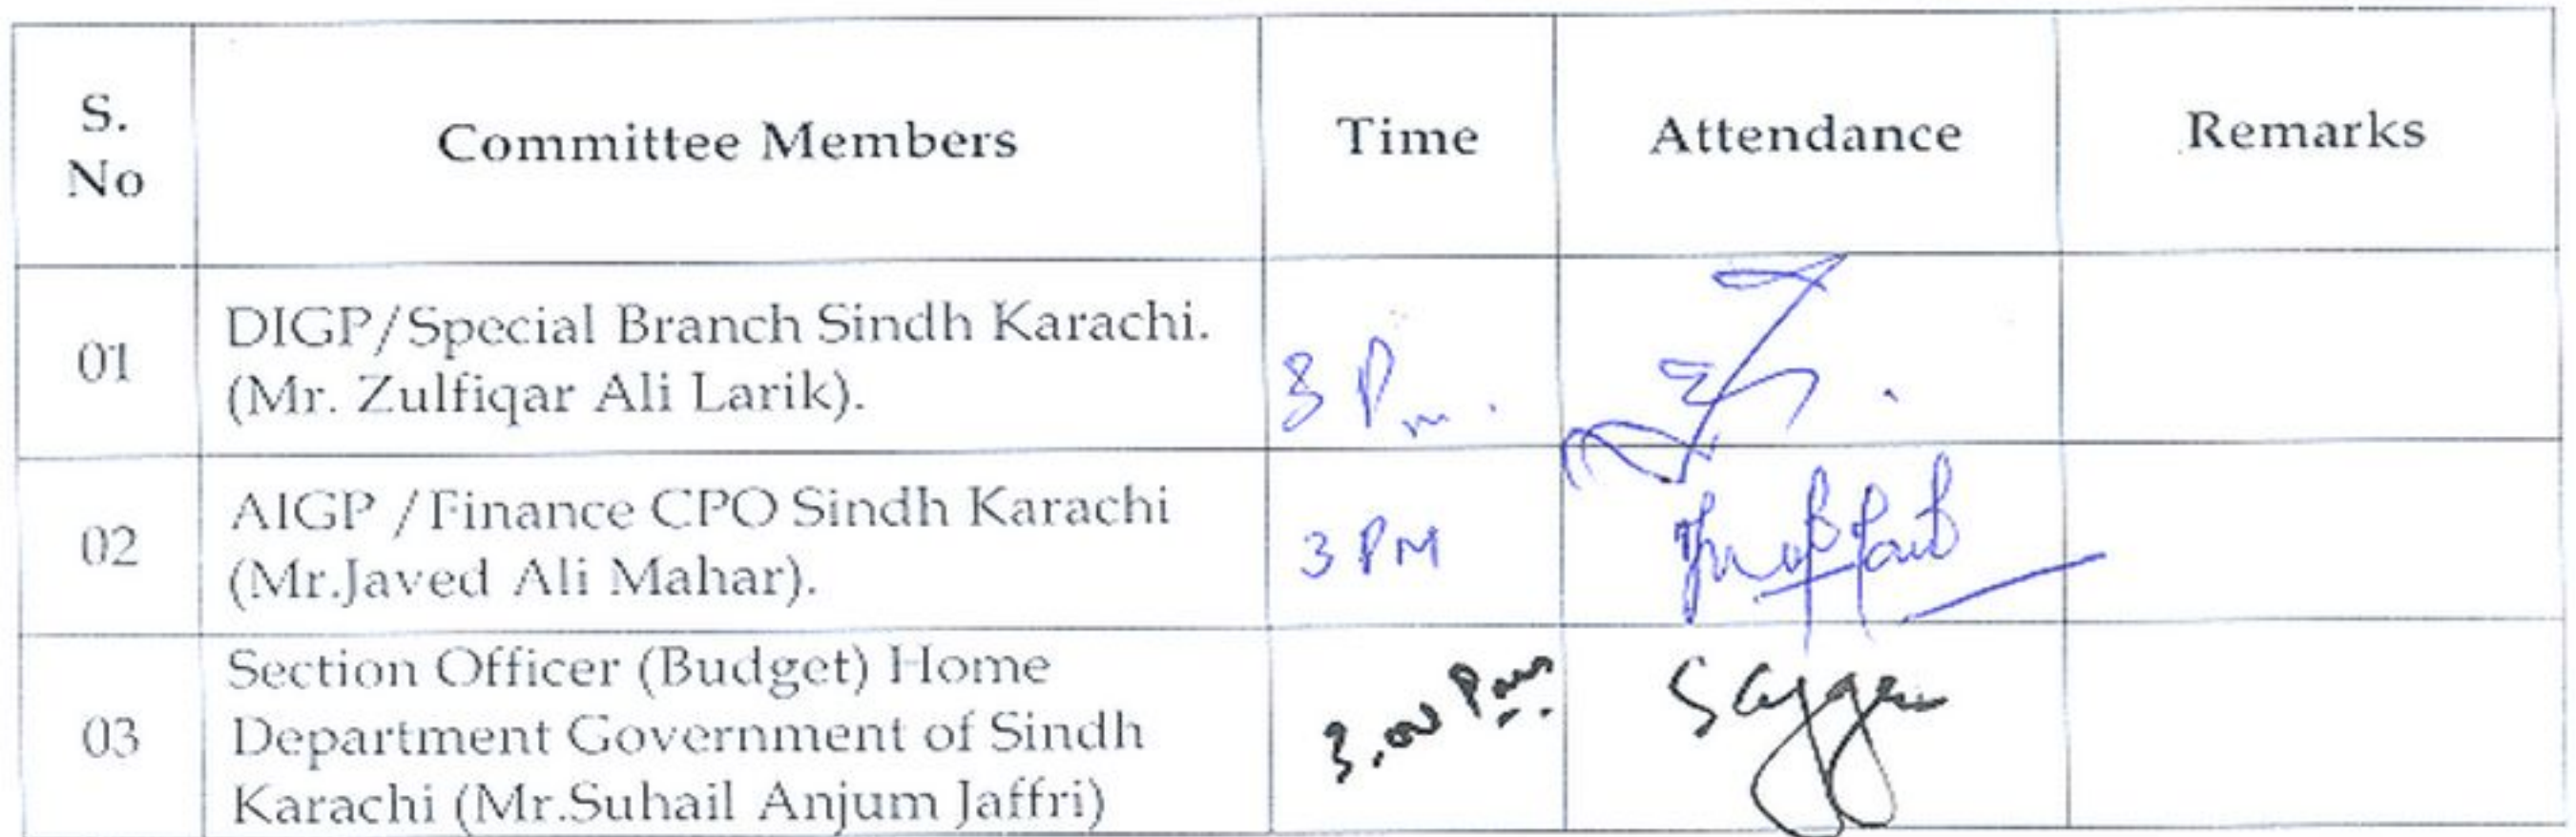 S.
No
Committee Members
Time
Attendance
Remarks
01
DIGP/Special Branch Sindh Karachi.
(Mr. Zulfiqar Ali Larik).
3 Pm.
02
AIGP /Finance CPO Sindh Karachi
(Mr.Javed Ali Mahar).
3 PM
03
Section Officer (Budget) Home
Department Government of Sindh
Karachi (Mr.Suhail Anjum Jaffri)
3.00 Pm